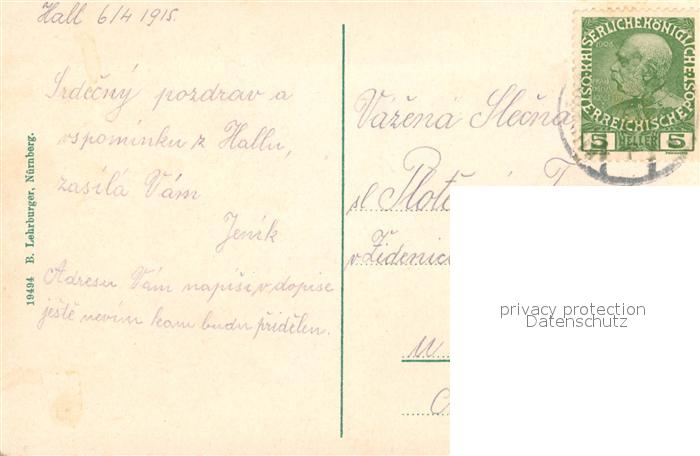 Hall 6/4 1915.
Srdečný pozdrav a
vspomínku z Hallu,
zasílá Vám
Jeník
Adresu Vám napíši v dopise
ještě nevím kam budu přidělen.
19494 B. Lehrburger, Nürnberg.
Vážená Slečna
sl
v Židenic
KAISERLICHE KÖNIGLICHE
ÖSTERREICHISCHE
1908
5 HELLER 5
privacy protection
Datenschutz